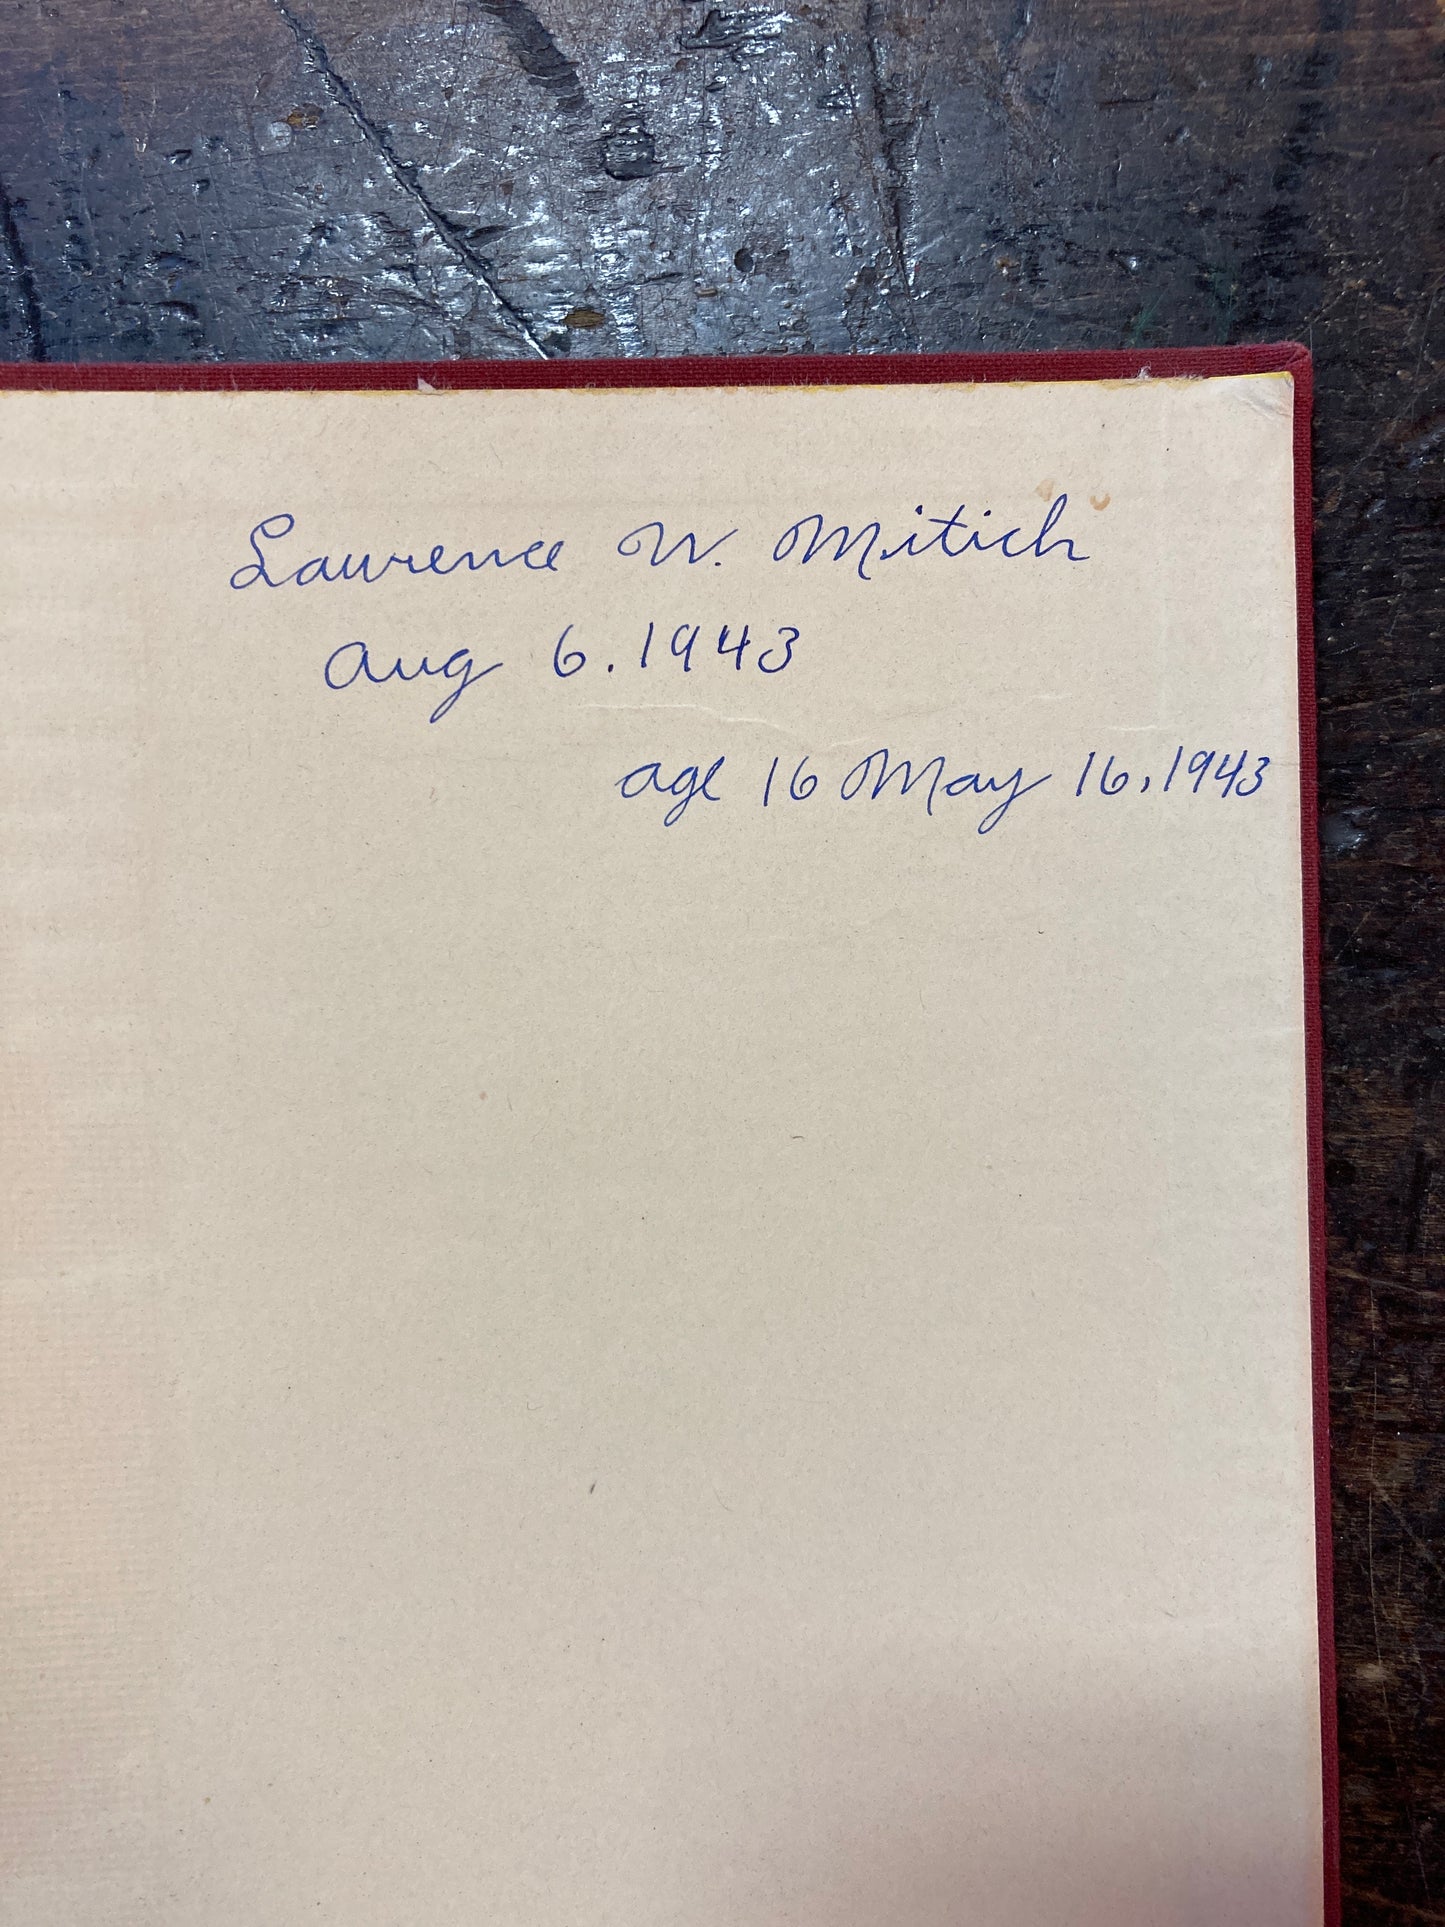 Lawrence W. Mitich
Aug 6. 1943
age 16 May 16, 1943